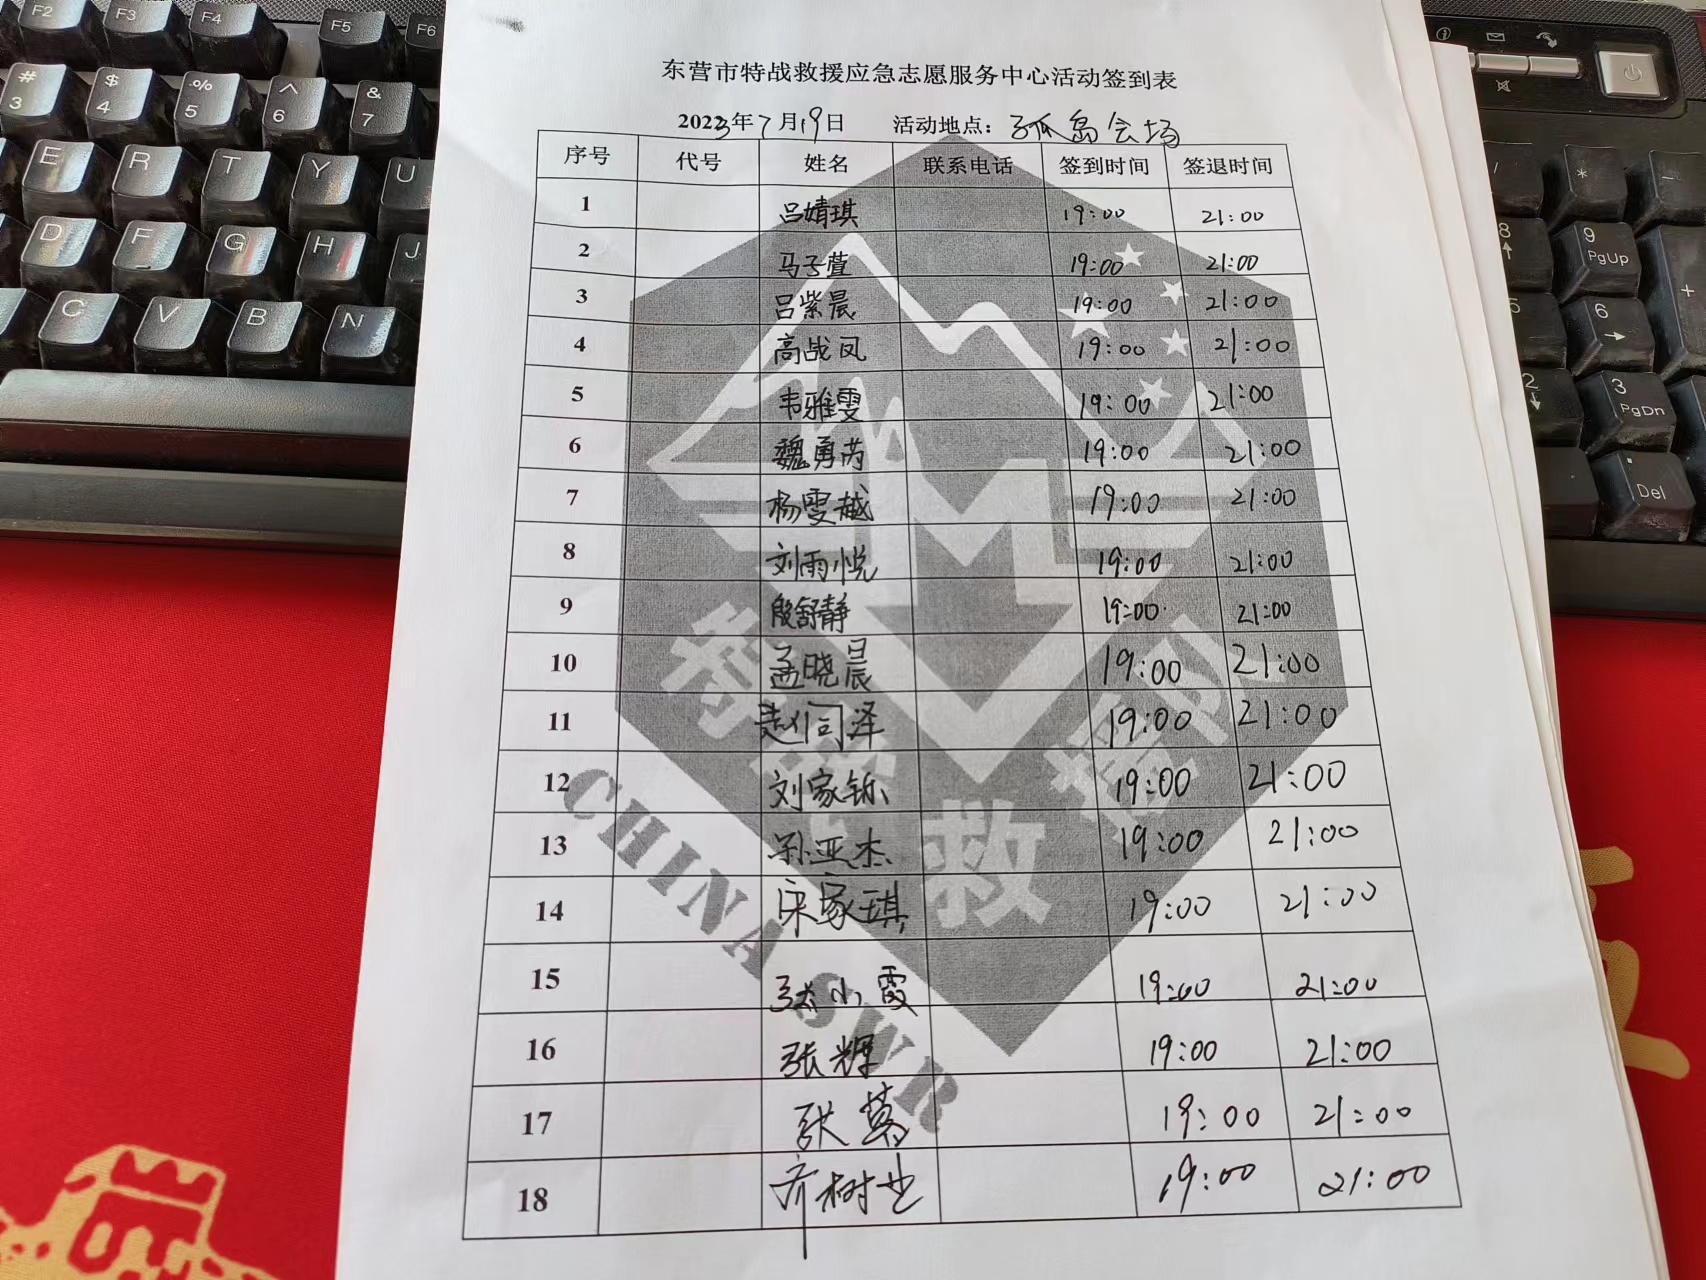 F2 F3 F4 F5 F6
# 3 $ 4 % 5 ^ 6 & 7
E R T Y U
D F G H J
C V B N
* -
8 9 PgUp +
5 6
2 3 PgDn
Del
东营市特战救援应急志愿服务中心活动签到表
2023年7月19日 活动地点：孤岛会场
序号 代号 姓名 联系电话 签到时间 签退时间
1 吕婧琪 19:00 21:00
2 马子萱 19:00 21:00
3 吕紫晨 19:00 21:00
4 高战凤 19:00 21:00
5 韦雅雯 19:00 21:00
6 魏勇芮 19:00 21:00
7 杨雯越 19:00 21:00
8 刘雨悦 19:00 21:00
9 殷舒静 19:00 21:00
10 孟晓晨 19:00 21:00
11 赵同泽 19:00 21:00
12 刘家铄 19:00 21:00
13 孙亚杰 19:00 21:00
14 宋家琪 19:00 21:00
15 张小霞 19:00 21:00
16 张辉 19:00 21:00
17 张 19:00 21:00
18 齐树 19:00 21:00
特战救援队
CHINA SWR